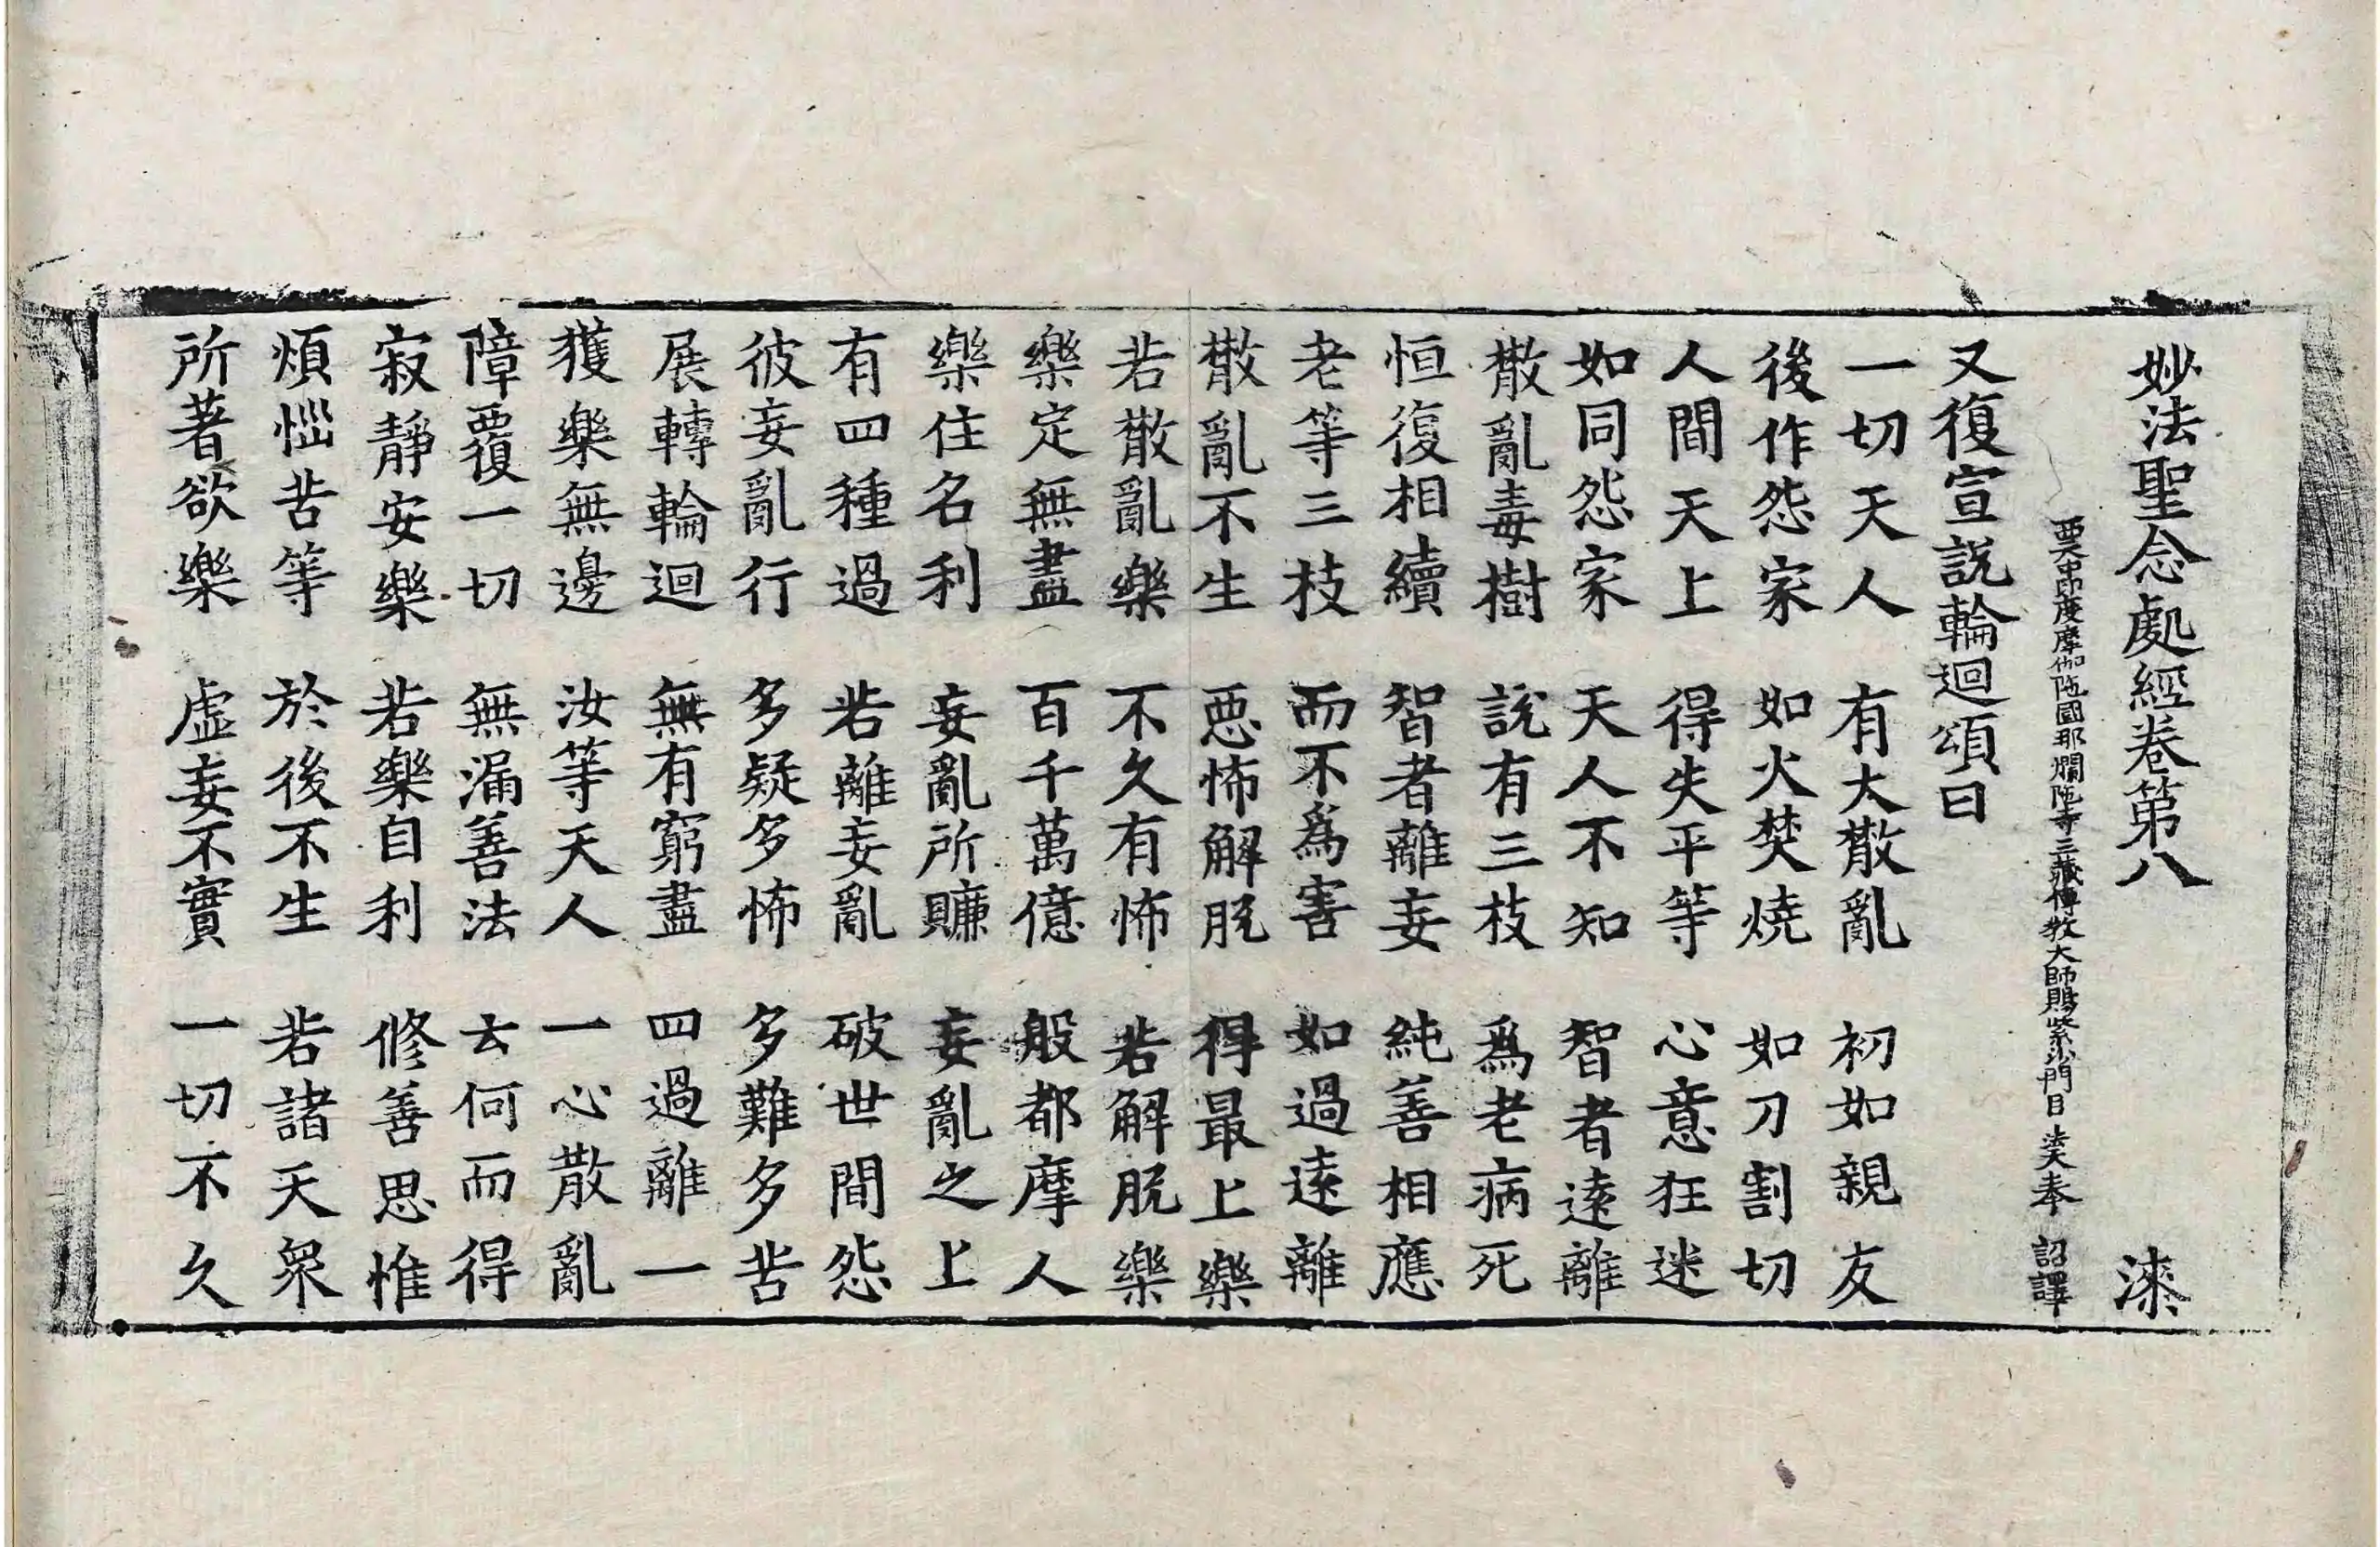 妙法聖念處經卷第八 漆
西天中印度摩伽陁國那爛陁寺三藏傳教大師賜紫沙門臣法天奉 詔譯
又復宣説輪迴頌曰
一切天人 有大散亂 初如親友
後作怨家 如火焚燒 如刀割切
人間天上 得失平等 心意狂迷
如同怨家 天人不知 智者逺離
散亂毒樹 説有三枝 爲老病死
恒復相續 智者離妄 純善相應
老等三枝 而不爲害 如過逺離
散亂不生 惡怖解脱 得最上樂
若散亂樂 不久有怖 若解脱樂
樂定無盡 百千萬億 般都摩人
樂住名利 妄亂所賺 妄亂之上
有四種過 若離妄亂 破世間怨
彼妄亂行 多疑多怖 多難多苦
展轉輪迴 無有窮盡 四過離一
獲樂無邊 汝等天人 一心散亂
障覆一切 無漏善法 云何而得
寂靜安樂 若樂自利 修善思惟
煩惱苦等 於後不生 若諸天衆
所著欲樂 虛妄不實 一切不久